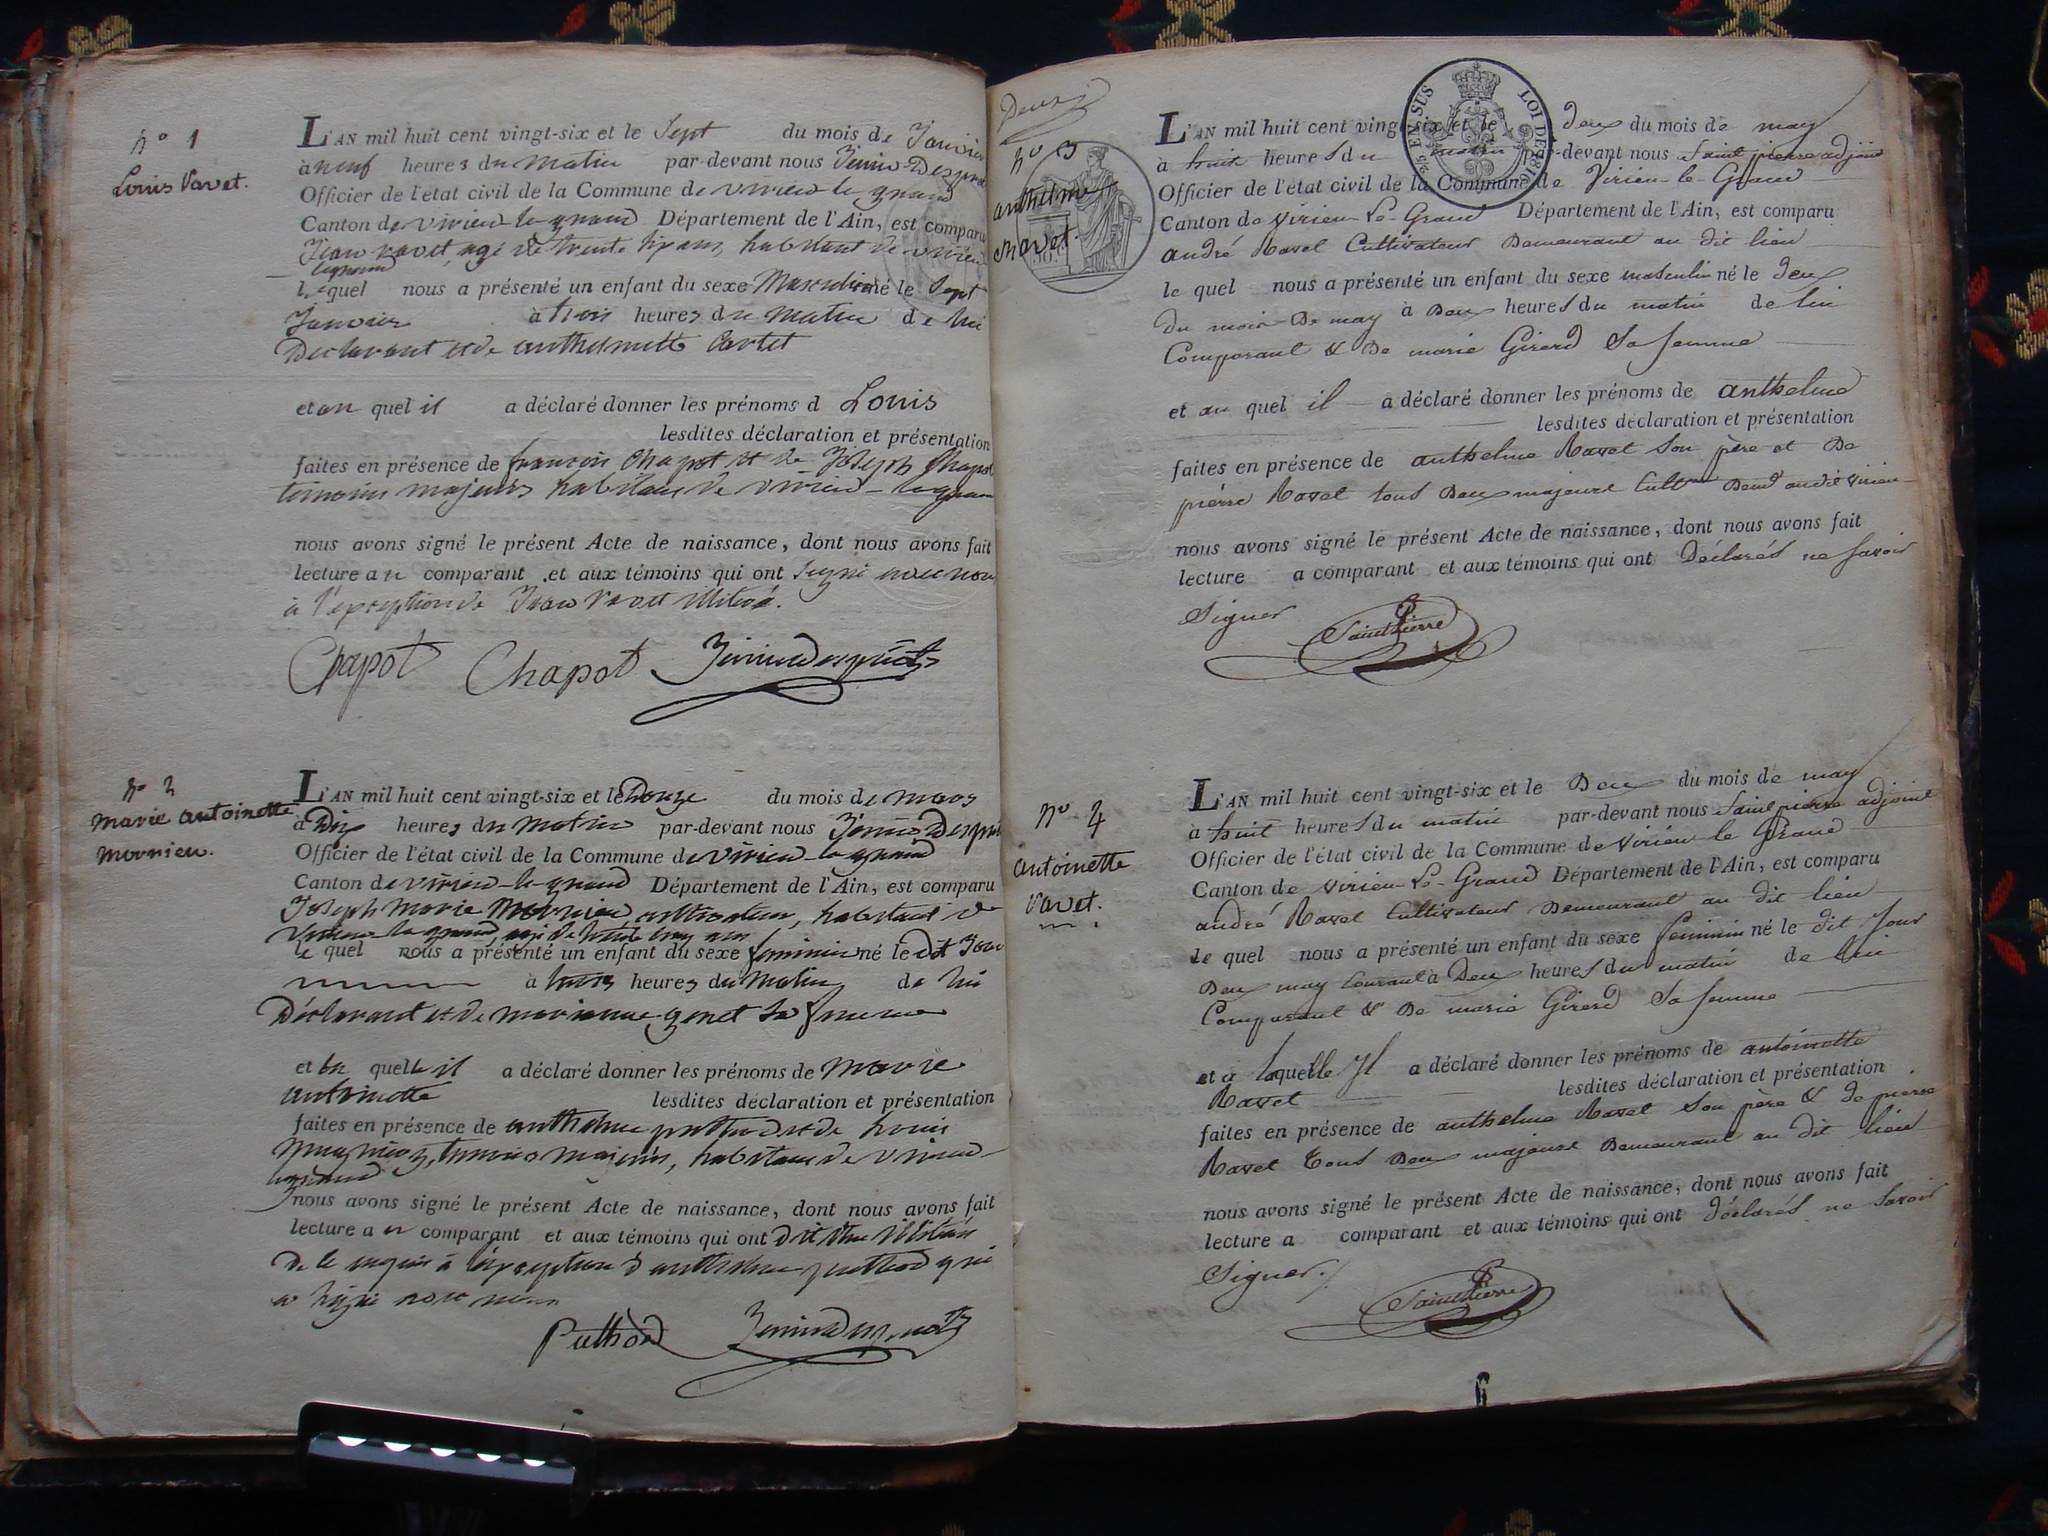 n° 1
Louis Ravet.
L'AN mil huit cent vingt-six et le Sept du mois de Janvier
à neuf heures du matin par-devant nous
Officier de l'état civil de la Commune de virieu le grand
Canton de virieu le grand Département de l'Ain, est comparu
Jean ravet, agé de trente six ans, habitant de virieu
legrand
le quel nous a présenté un enfant du sexe Masculin né le Sept
Janvier à trois heures du Matin de lui
Déclarant et de anthelmette
et au quel il a déclaré donner les prénoms d Louis
lesdites déclaration et présentation
faites en présence de françois Chapot et de Joseph Chapot
témoins majeurs habitans de virieu-le grand
nous avons signé le présent Acte de naissance, dont nous avons fait
lecture au comparant et aux témoins qui ont signé avec nous
à l'exception de Jean Ravet illitéré.
Chapot Chapot
n° 2
marie antoinette
mornieu.
L'AN mil huit cent vingt-six et le Douze du mois de mars
à Dix heures du matin par-devant nous
Officier de l'état civil de la Commune de virieu le grand
Canton de virieu-le-grand Département de l'Ain, est comparu
Joseph Marie Mornieu cultivateur, habitant de
virieu le grand, agé de trente trois ans
le quel nous a présenté un enfant du sexe feminin né le dit Jour
à trois heures du Matin de lui
Déclarant et de marianne genet sa femme
et la quelle il a déclaré donner les prénoms de marie
antoinette lesdites déclaration et présentation
faites en présence de anthelme puthod et de Louis
témoins majeurs, habitans de virieu-
legrand
nous avons signé le présent Acte de naissance, dont nous avons fait
lecture au comparant et aux témoins qui ont dit être illitérés
de ce requis à l'exception d'anthelme puthod qui
a signé avec nous
Puthod
Deux
n° 3
anthelme
ravet
25 EN SUS LOI DE 1816
L'AN mil huit cent vingt-six et le deux du mois de may
à huit heures du matin par-devant nous Saint pierre adjoint
Officier de l'état civil de la Commune de Virieu-le-Grand
Canton de virieu-Le-Grand Département de l'Ain, est comparu
andré Ravet Cultivateur Demeurant au dit lieu
le quel nous a présenté un enfant du sexe masculin né le deux
du mois De may à Deux heures du matin de lui
Comparant & De marie Girerd Sa femme
et au quel il a déclaré donner les prénoms de anthelme
lesdites déclaration et présentation
faites en présence de anthelme Ravet Son père et De
pierre Ravet tous Deux majeurs Cultrs Demt audit virieu
nous avons signé le présent Acte de naissance, dont nous avons fait
lecture a comparant et aux témoins qui ont Déclarés ne Savoir
Signer
Saintpierre
n° 4
antoinette
ravet.
L'AN mil huit cent vingt-six et le Deux du mois de may
à huit heures du matin par-devant nous Saint pierre adjoint
Officier de l'état civil de la Commune de Virieu le Grand
Canton de virieu Le-Grand Département de l'Ain, est comparu
andré Ravet Cultivateur Demeurant au dit lieu
le quel nous a présenté un enfant du sexe feminin né le dit Jour
Deux may Courant à Deux heures du matin de lui
Comparant & De marie Girerd Sa femme
et à laquelle Il a déclaré donner les prénoms de antoinette
Ravet lesdites déclaration et présentation
faites en présence de anthelme Ravet Son père & de pierre
Ravet Tous Deux majeurs Demeurant au dit lieu
nous avons signé le présent Acte de naissance, dont nous avons fait
lecture a comparant et aux témoins qui ont déclarés ne Savoir
Signer./
Saintpierre